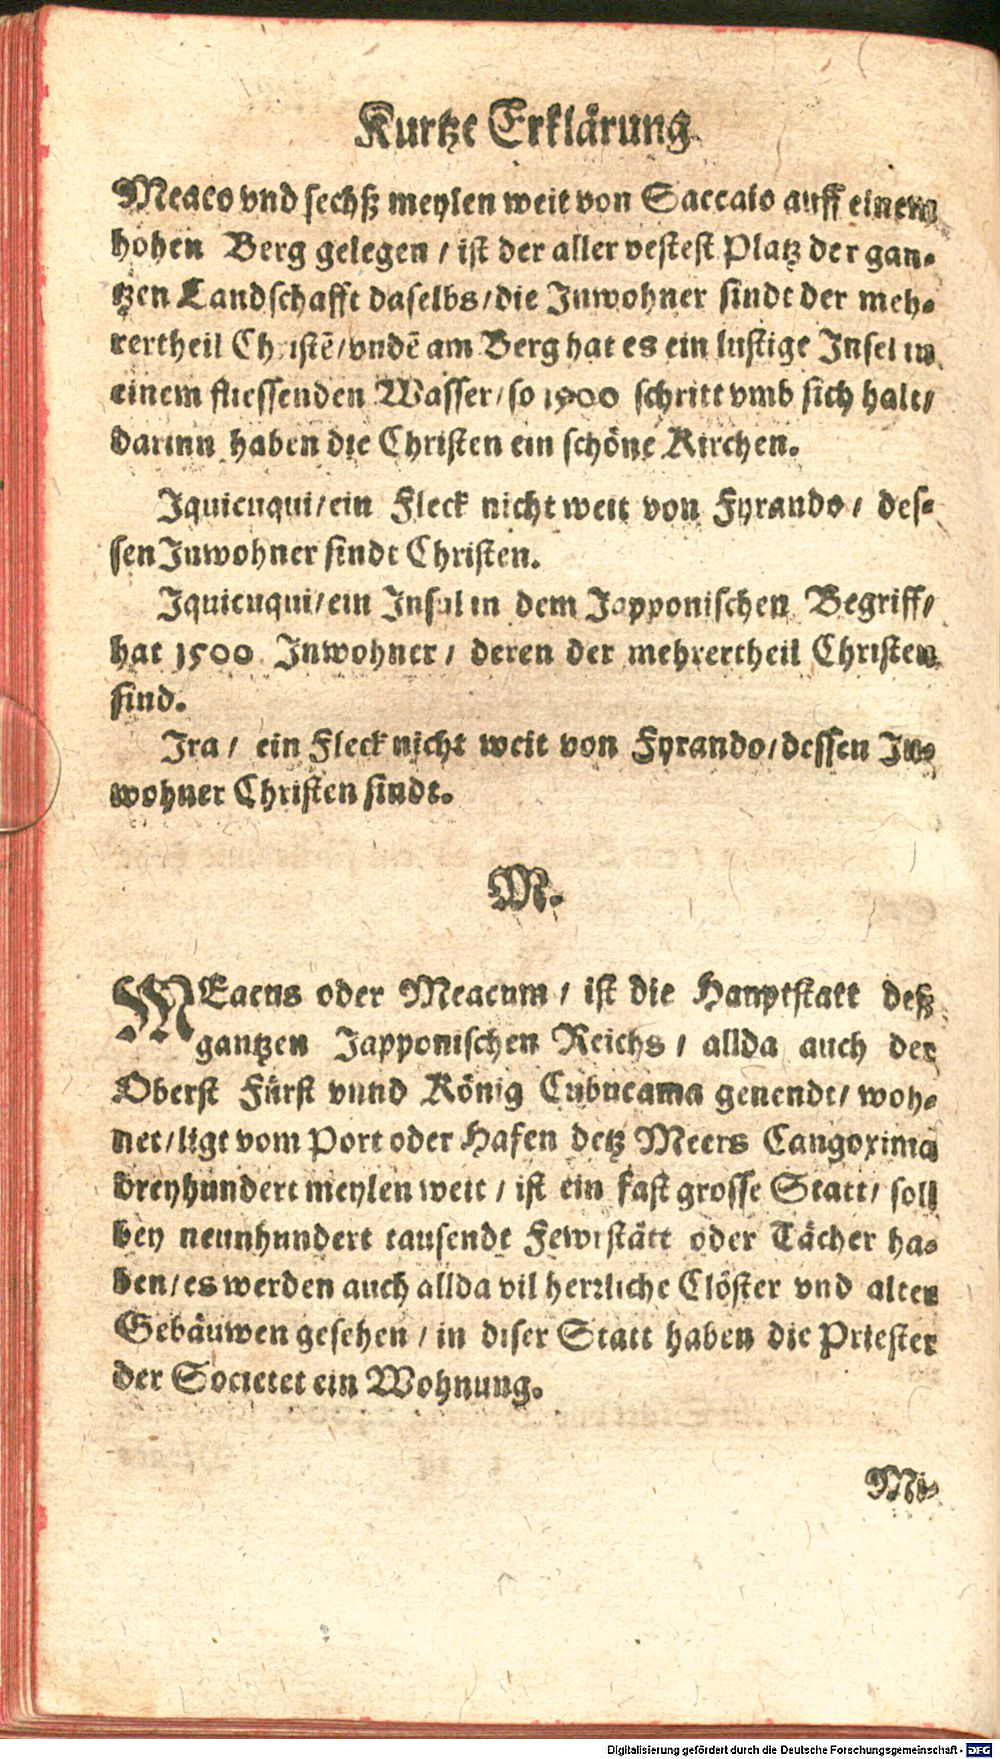 Kurtze Erklärung
Meaco vnd sechß meylen weit von Saccaio auff einem
hohen Berg gelegen / ist der aller vestest Platz der gan-
tzen Landschafft daselbs / die Inwohner sindt der meh-
rertheil Christẽ / vndẽ am Berg hat es ein lustige Insel in
einem fliessenden Wasser / so 1900 schritt vmb sich halt /
darinn haben die Christen ein schöne Kirchen.
Iquicuqui / ein Fleck nicht weit von Fyrando / des-
sen Inwohner sindt Christen.
Iquicuqui / ein Insul in dem Japponischen Begriff /
hat 1500 Inwohner / deren der mehrertheil Christen
sind.
Ira / ein Fleck nicht weit von Fyrando / dessen In-
wohner Christen sindt.
M.
MEacus oder Meacum / ist die Hauptstatt deß
gantzen Japponischen Reichs / allda auch der
Oberst Fürst vnnd König Cubucama genendt / woh-
net / ligt vom Port oder Hafen detz Meers Cangoxima
dreyhundert meylen weit / ist ein fast grosse Statt / soll
bey neunhundert tausendt Fewrstätt oder Tächer ha-
ben / es werden auch allda vil herrliche Clöster vnd alter
Gebäuwen gesehen / in diser Statt haben die Priester
der Societet ein Wohnung.
Mi-
Digitalisierung gefördert durch die Deutsche Forschungsgemeinschaft - DFG